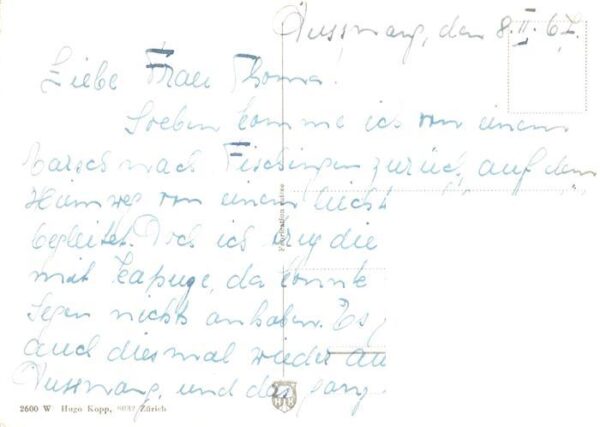 Dussnang, den 8.II.67.
Liebe Frau Thoma!
Soeben komme ich von einem
Marsch nach Fischingen zurück, auf dem
Heimweg von einem leicht
begleitet. Doch ich trug die
mit Kapuze, da konnte
Regen nicht anhaben. Es
auch diesmal wieder
Dussnang, und das ganz
Fabrication suisse
2600 W Hugo Kopp, 8032 Zürich